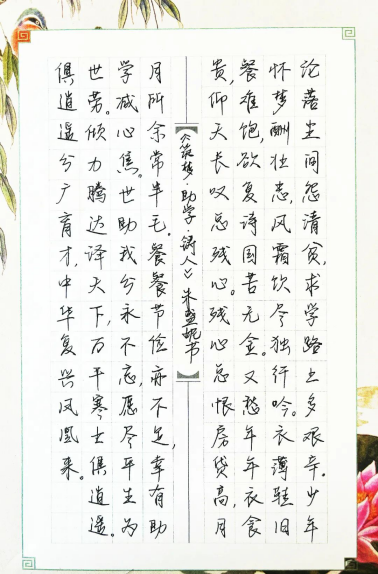 沦落尘间怨清贫,求学路上多艰辛。少年
怀梦酬壮志,风霜饮尽独行吟。衣薄鞋旧
餐难饱,欲复诗国苦无金。又愁年年衣食
贵,仰天长叹总残心。残心总恨房贷高,月
《筑梦·助学·铸人》朱盈妮书
月所余常半毛。餐餐节俭亦不足,幸有助
学减心焦。世助我兮永不忘,愿尽平生为
世劳。倾力腾达泽天下,万千寒士俱逍遥。
俱逍遥兮广育才,中华复兴凤凰来。